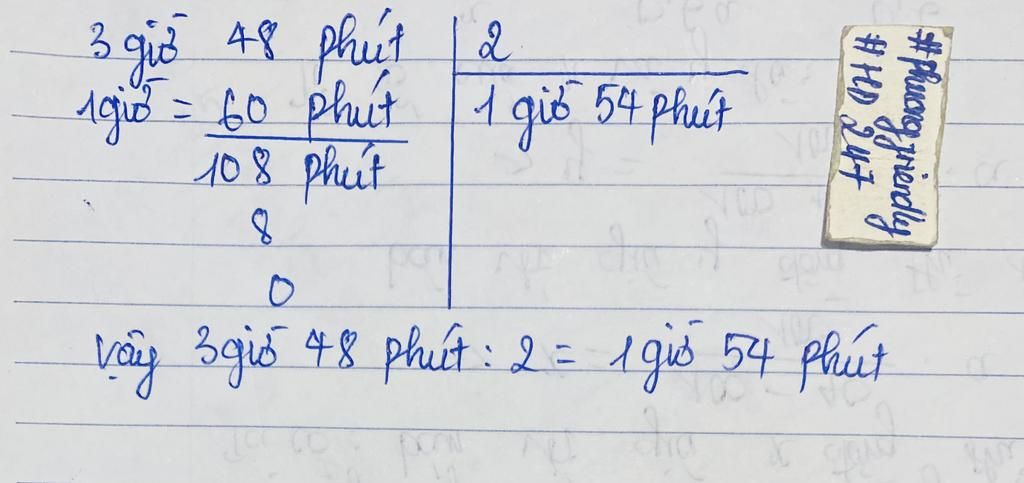 3 giờ 48 phút | 2
1 giờ = 60 phút | 1 giờ 54 phút
108 phút
8
0
Vậy 3 giờ 48 phút : 2 = 1 giờ 54 phút
#Phuongfriendly
#HD 247